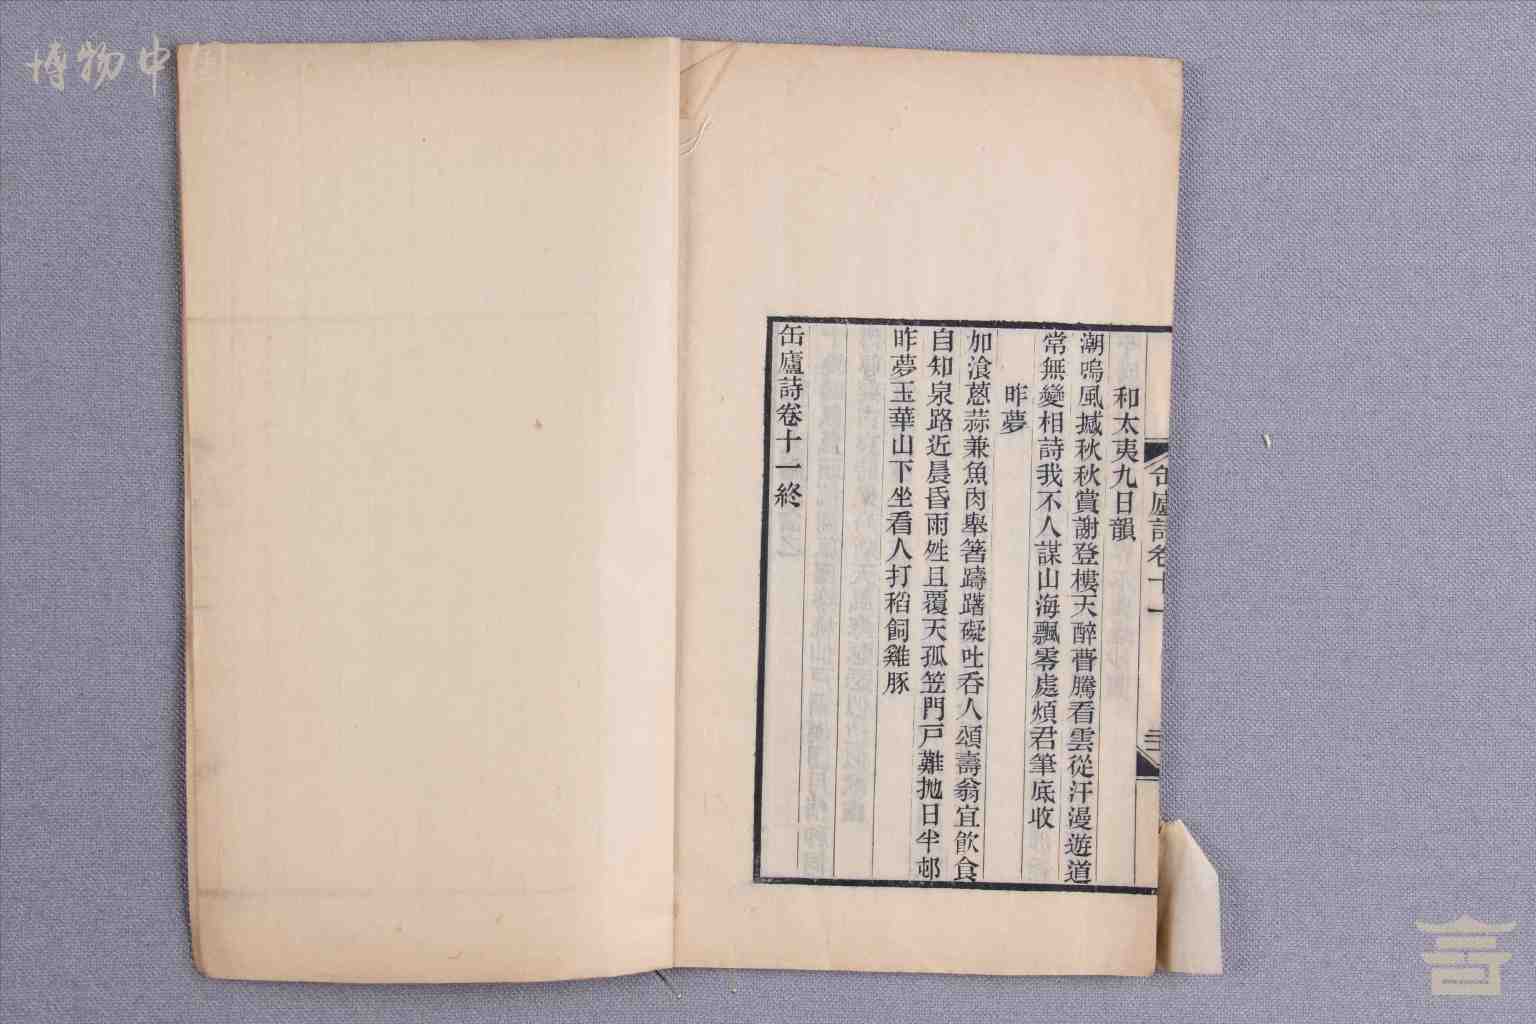 博物中国
缶廬詩卷十一
和太夷九日韻
潮鳴風撼秋秋賞謝登樓天醉瞢騰看雲從汗漫遊道
常無變相詩我不人謀山海飄零處煩君筆底收
昨夢
加湌蔥蒜兼魚肉舉箸躊躇礙吐吞人頌壽翁宜飲食
自知泉路近晨昏雨甠且覆天孤笠門戸難抛日半邨
昨夢玉華山下坐看人打稻飼雞豚
缶廬詩卷十一終